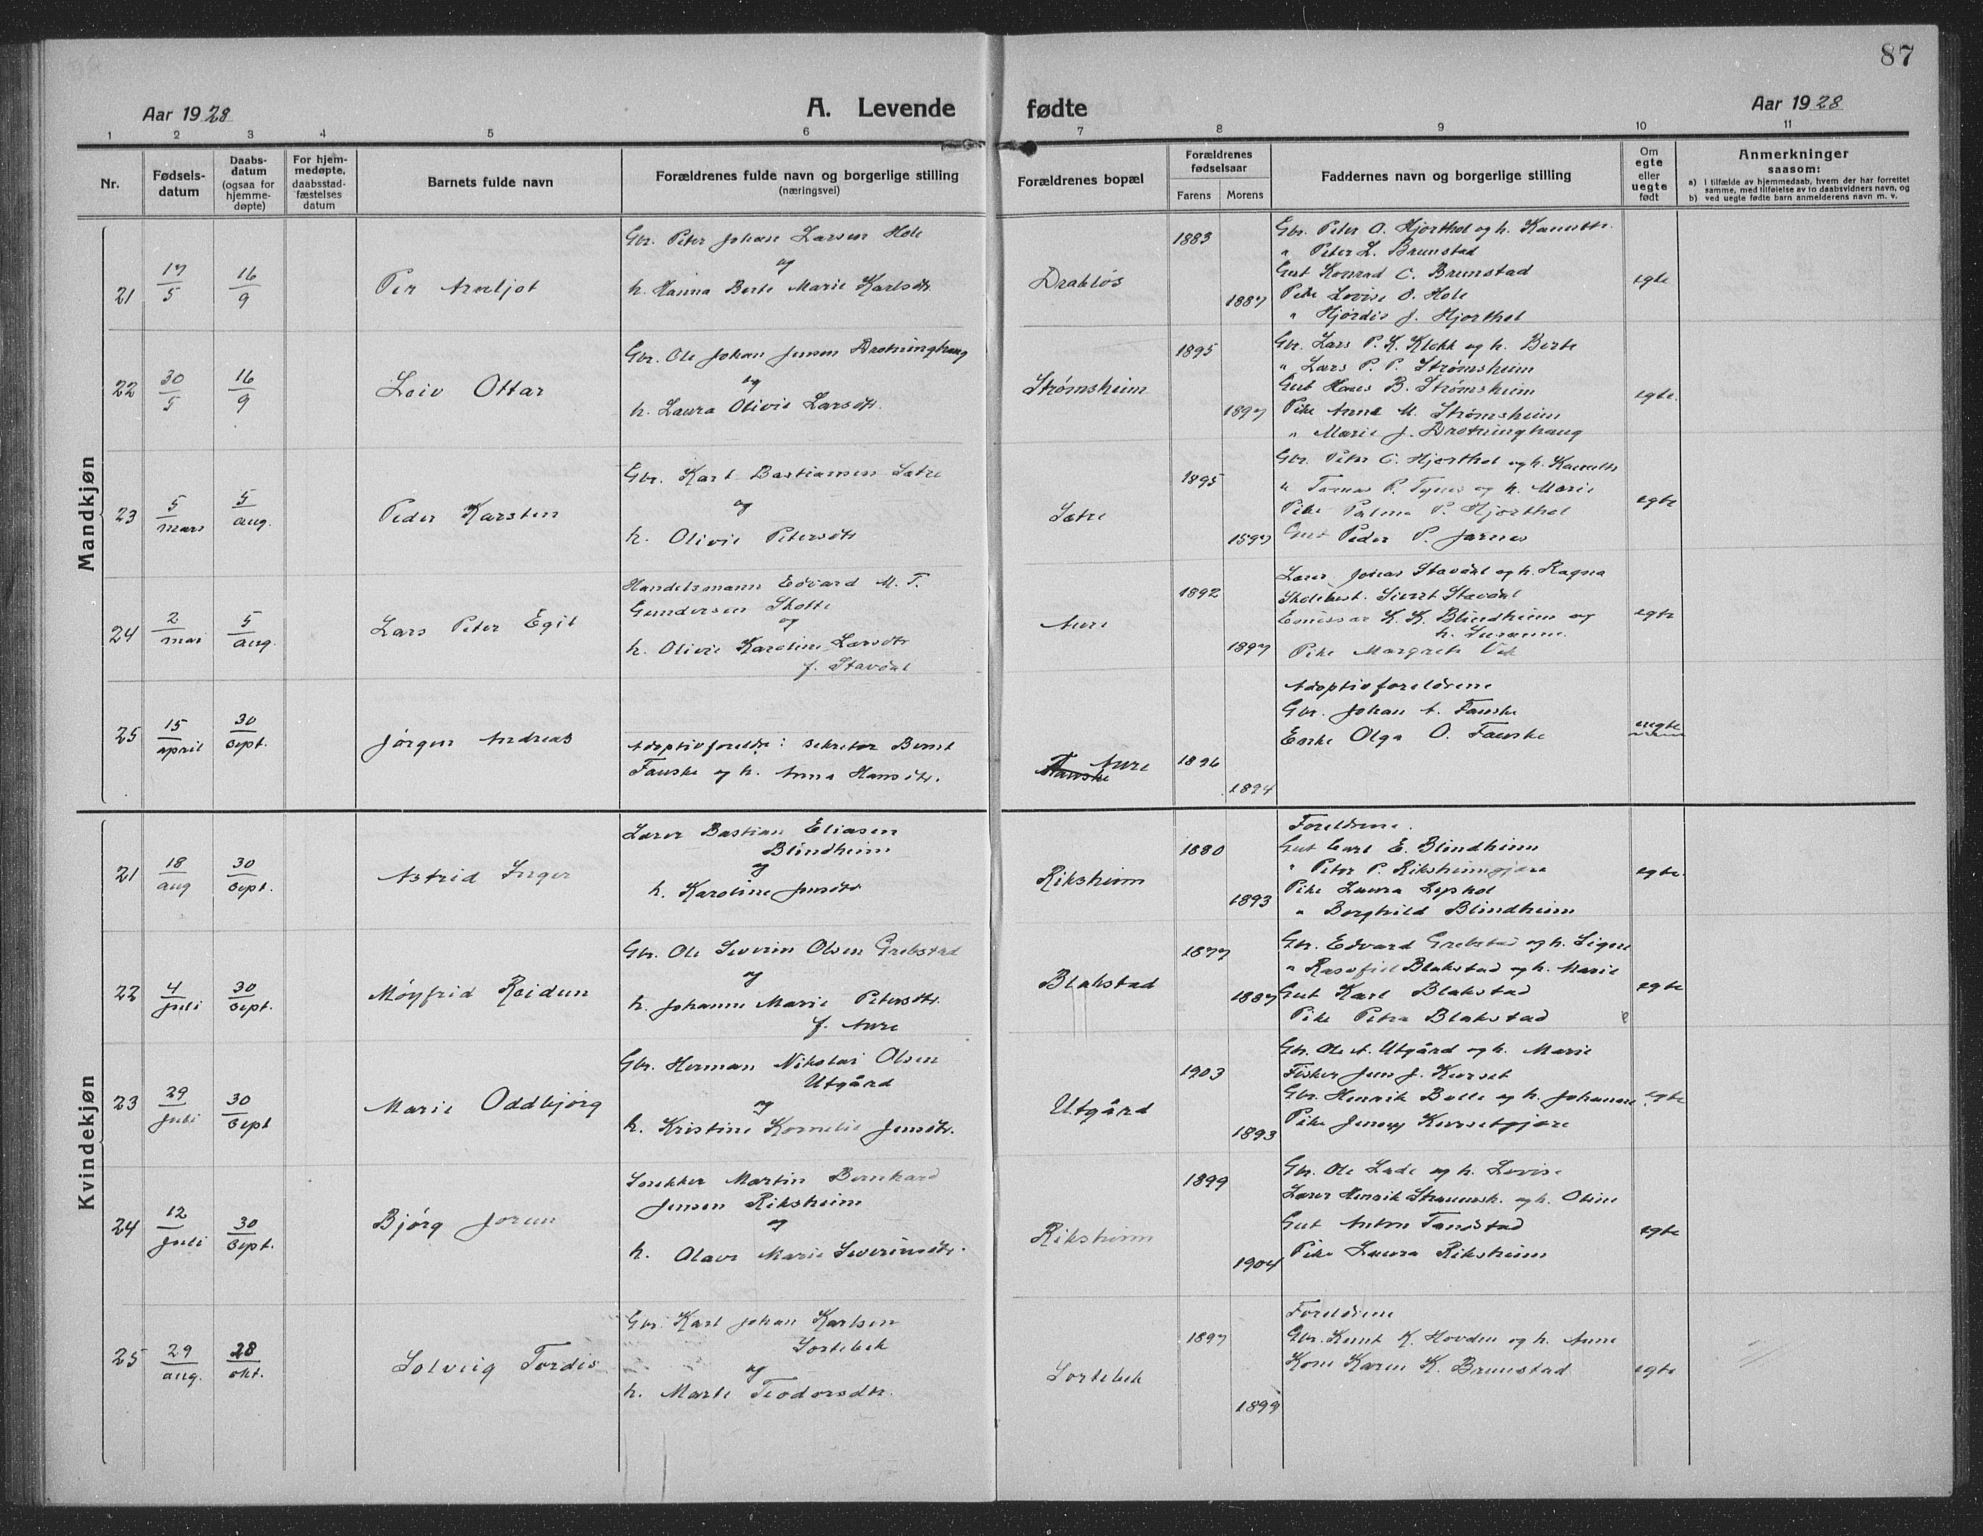 87
Aar 1928
A. Levende fødte
Aar 1928
1 2 3 4 5 6 7 8 9 10 11
Nr.
Fødsels-
datum
Daabs-
datum
(ogsaa for
hjemme-
døpte)
For hjem-
medøpte,
daabsstad-
fæstelses
datum
Barnets fulde navn
Forældrenes fulde navn og borgerlige stilling
(næringsvei)
Forældrenes bopæl
Forældrenes
fødselsaar
Farens Morens
Faddernes navn og borgerlige stilling
Om
egte
eller
uegte
født
Anmerkninger
saasom:
a) I tilfælde av hjemmedaab, hvem der har forrettet
samme, med tilføielse av to daabsvidners navn, og
b) ved uegte fødte barn anmelderens navn m. v.
Mandkjøn
21 17/5 16/9
Per Arneljot
Gbr. Peter Johan Larsen Hole
og
h. Hanna Berte Marie Karlsdtr.
Drabløs
1883
1887
Gbr. Peter O. Hjorthol og h. Kanutte.
" Peter L. Brunstad
Gut Konrad C. Brunstad
Pike Lovise O. Hole
" Hjördis J. Hjorthol
egte
22 30/5 16/9
Leiv Ottar
Gbr. Ole Johan Jensen Drotninghaug
og
h. Laura Olivie Larsdtr.
Strømsheim
1895
1897
Gbr. Lars P. K. Klokk og h. Berte
" Lars P. P. Strømsheim
Gut Hans B. Strømsheim
Pike Anne M. Strømsheim
" Marie J. Drotninghaug
egte.
23 5/mars 5/aug.
Peder Karsten
Gbr. Karl Bastiansen Sætre
og
h. Olivie Petersdtr
Sætre
1895
1897
Gbr. Peter O. Hjorthol og h. Kanutte
" Tomas P. Tynes og h. Marie
Pike Palma P. Hjorthol
Gut Peder P. Jarnes
egte
24 2/mai 5/aug.
Lars Peter Egil
Handelsmann Edvard M. T.
Gundersen Skotte
og
h. Olivie Karoline Larsdtr
f. Stavdal
Aure
1892
1897
Lærer Jonas Stavdal og h. Ragna
Skolebest. Sivert Stavdal
Emissær K. K. Blindheim og
h. Susanne.
Pike Margrete Vik
egte
25 15/april 30/sept.
Jørgen Andreas
Adoptivforeldre: sekretær Bernt
Fauske og h. Anna Hansdtr.
Fauske Aure
1896
1894
Adoptivforeldrene
Gbr. Johan A. Fauske
Enke Olga O. Fauske
uegte
Kvindekjøn
21 18/aug 30/sept.
Astrid Inger
Lærer Bastian Eliasen
Blindheim
og
h. Karoline Jensdtr
Riksheim
1880
1893
Foreldrene.
Gut Carl E. Blindheim
" Peter P. Riksheimgjære
Pike Laura Lyshol
" Borghild Blindheim
egte.
22 4/juli 30/sept.
Møyfrid Reidun
Gbr. Ole Severin Olsen Grebstad
og
h. Johanne Marie Petersdtr.
f. Aure
Blakstad
1877
1887
Gbr. Edvard Grebstad og h. Signe
" Rasofiel Blakstad og h. Marie
Gut Karl Blakstad
Pike Petra Blakstad
egte
23 29/juli 30/sept
Marie Oddbjørg
Gbr. Herman Nikolai Olsen
Utgård
og
h. Kristine Kornelie Jensdtr.
Utgård
1903
1893
Gbr. Ole A. Utgård og h. Marie
Fisker Jens J. Kurset
Gbr. Henrik Bolle og h. Johanne
Pike Jenny Kursetgjære
egte
24 12/juli 30/sept.
Bjørg Jorun
Snekker Martin Bernhard
Jensen Riksheim
og
h. Olave Marie Severinsdtr.
Riksheim
1899
1904
Gbr. Ole Lade og h. Lovise
Lærer Henrik Straumsh. og h. Oline
Gut Anton Tandstad
Pike Laura Riksheim
egte
25 29/aug. 28/okt.
Solveig Tordis
Gbr. Karl Johan Karlsen
Sortebek
og
h. Marte Teodorsdtr.
Sortebek
1897
1899
Foreldrene
Gbr. Knut K. Hovden og h. Anne
Kone Karen K. Brunstad
egte